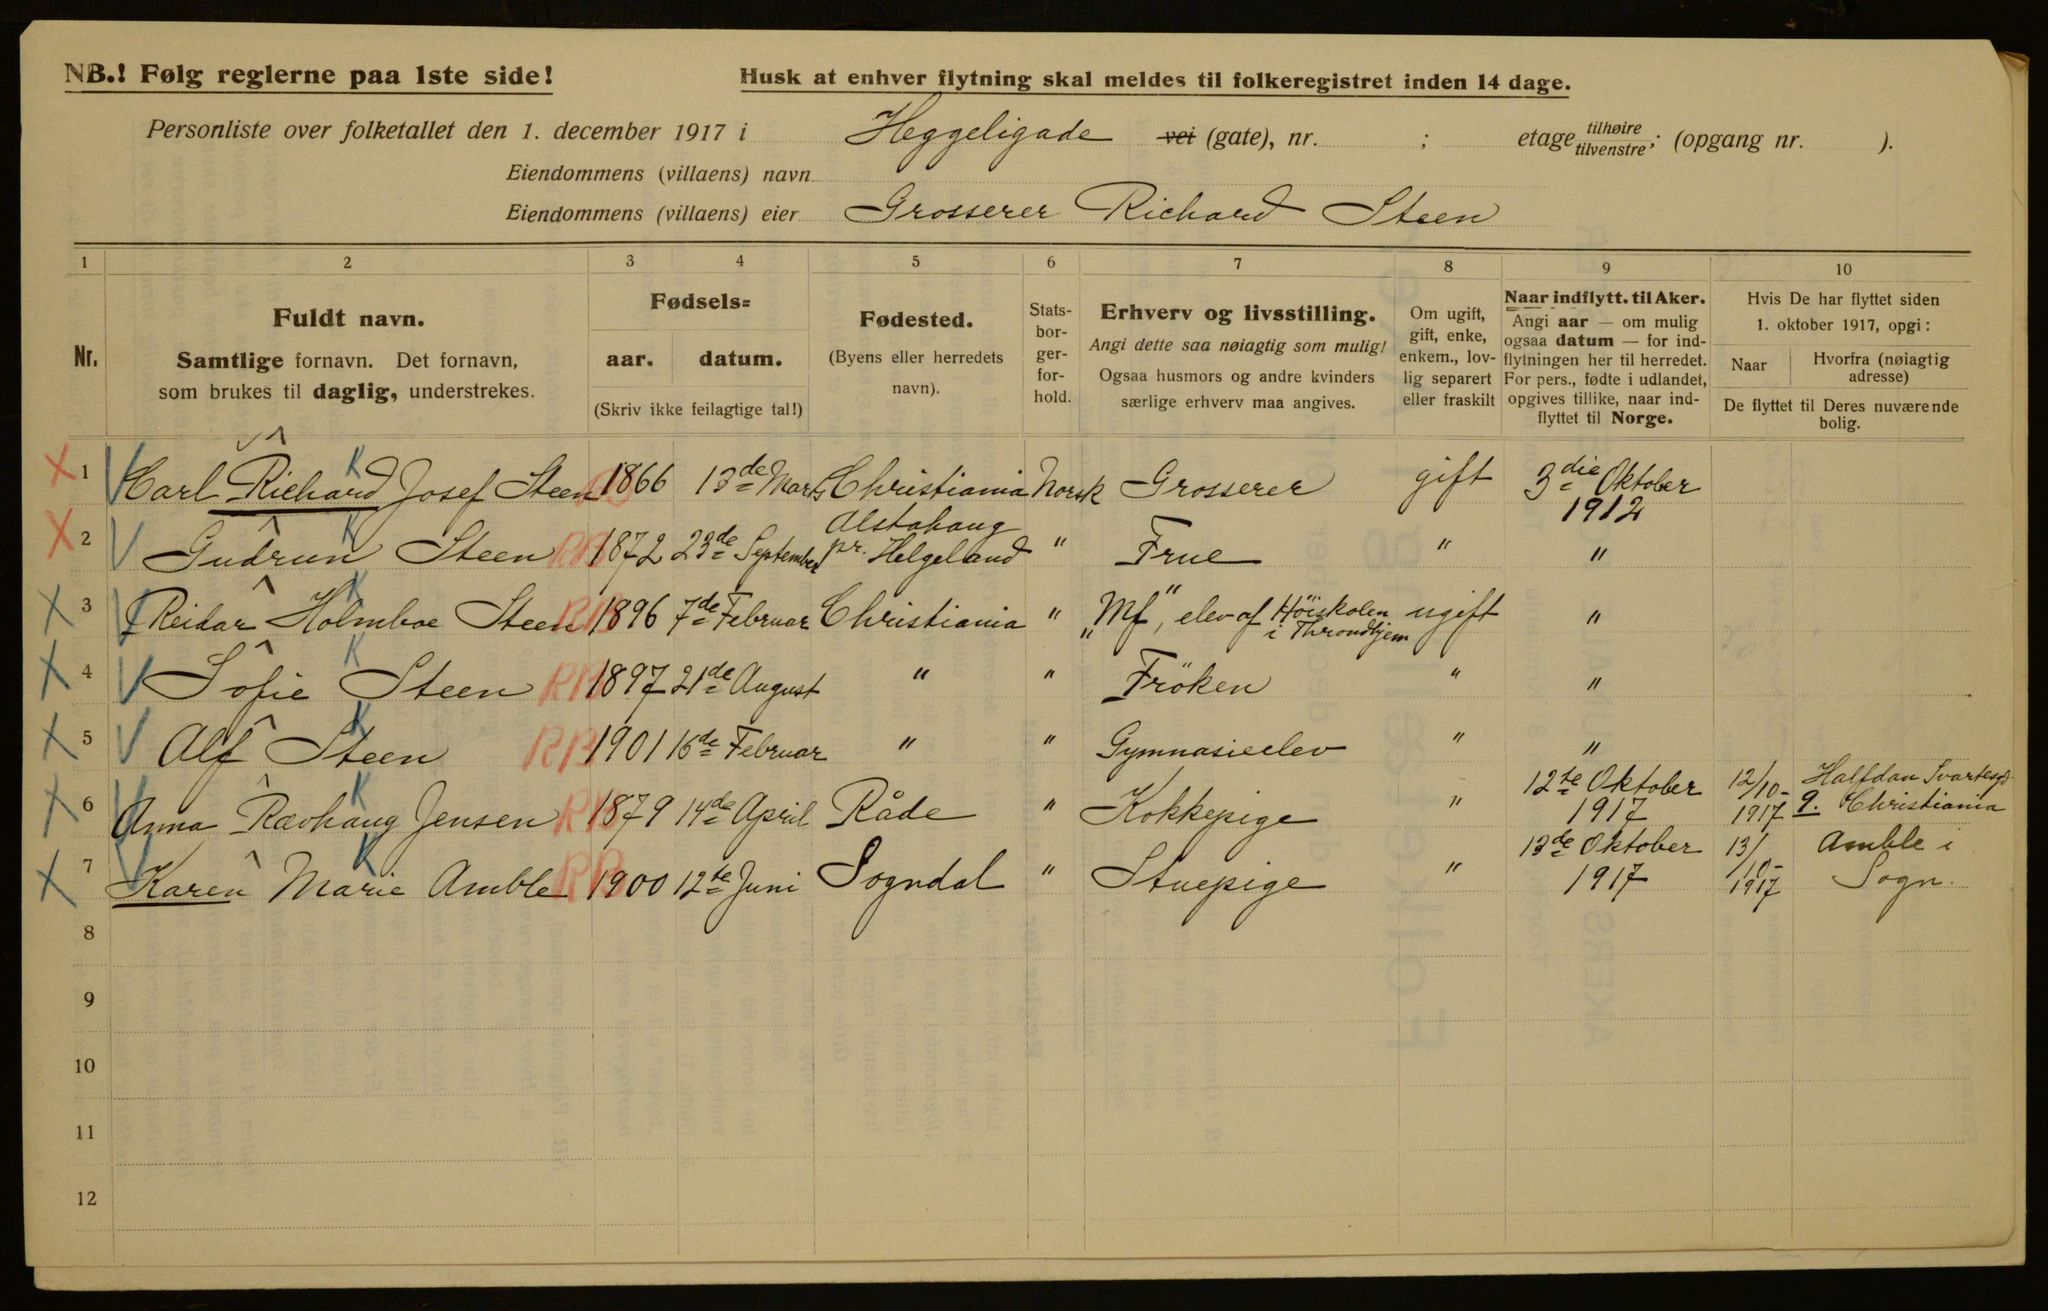 NB.! Følg reglerne paa 1ste side!
Husk at enhver flytning skal meldes til folkeregistret inden 14 dage.
Personliste over folketallet den 1. december 1917 i Heggeligade vei (gate), nr. ; etage tilhøire tilvenstre; (opgang nr. ).
Eiendommens (villaens) navn
Eiendommens (villaens) eier Grosserer Richard Steen
1 2 3 4 5 6 7 8 9 10
Nr.
Fuldt navn.
Samtlige fornavn. Det fornavn,
som brukes til daglig, understrekes.
Fødsels=
aar. datum.
(Skriv ikke feilagtige tal!)
Fødested.
(Byens eller herredets
navn).
Stats-
bor-
ger-
for-
hold.
Erhverv og livsstilling.
Angi dette saa nøiagtig som mulig!
Ogsaa husmors og andre kvinders
særlige erhverv maa angives.
Om ugift,
gift, enke,
enkem., lov-
lig separert
eller fraskilt
Naar indflytt. til Aker.
Angi aar — om mulig
ogsaa datum — for ind-
flytningen her til herredet.
For pers., fødte i udlandet,
opgives tillike, naar ind-
flyttet til Norge.
Hvis De har flyttet siden
1. oktober 1917, opgi:
Naar Hvorfra (nøiagtig
adresse)
De flyttet til Deres nuværende
bolig.
X 1 V Carl Richard Josef Steen 1866 13de Marts Christiania Norsk Grosserer gift 3die Oktober
1912
X 2 V Gudrun Steen RB 1872 23de September Alstahaug
pr. Helgeland " Frue " "
X 3 V Reidar Holmboe Steen RB 1896 7de Februar Christiania " "Mf", elev af Höiskolen
i Throndhjem ugift "
X 4 V Sofie Steen RB 1897 21de August " " Fröken " "
X 5 V Alf Steen RB 1901 16de Februar " " Gymnasieelev " "
X 6 V Anna Rævhaug Jensen RB 1879 14de April Råde " Kokkepige " 12te Oktober
1917 12/10-
1917 Halfdan Svartesgd
9. Christiania
X 7 V Karen Marie Amble RB 1900 12te Juni Sogndal " Stuepige " 13de Oktober
1917 13/10-
1917 Amble i
Sogn.
8
9
10
11
12